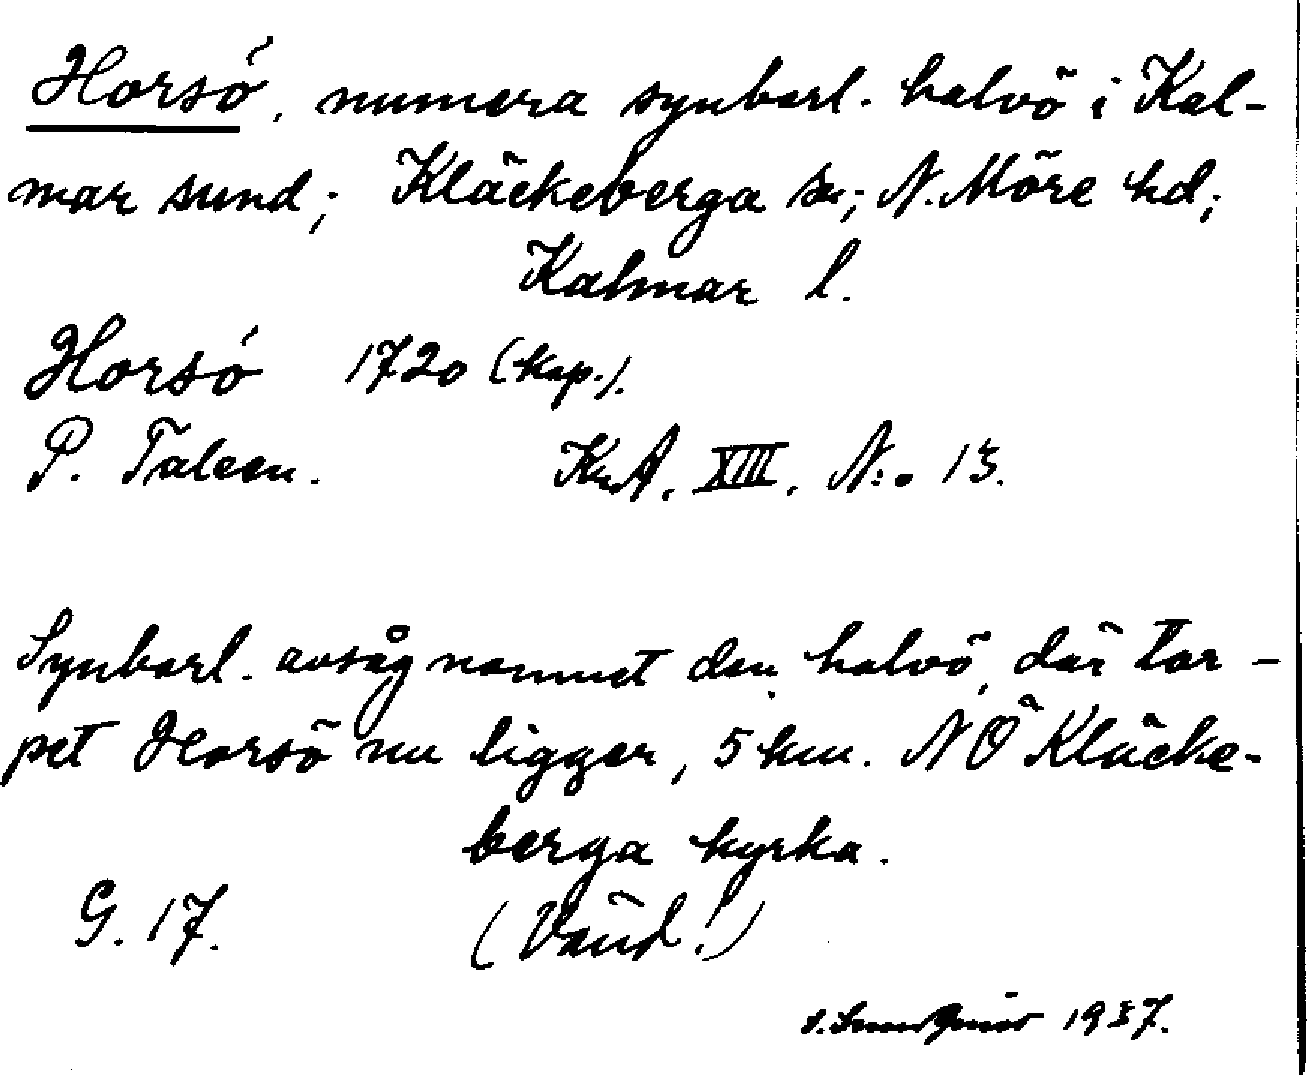 Horsó, numera synbarl. halvö i Kal-
mar sund; Kläckeberga sn; N. Möre hd;
Kalmar l.
Horsó 1720 (kop.).
P. Taleen. Kr.A. XIII. N:o 13.
Synbarl. avsåg namnet den halvö, där tor-
pet Horsö nu ligger, 5 km. NÖ Kläcke-
berga kyrka.
G. 17. (Vänd!)
1937.